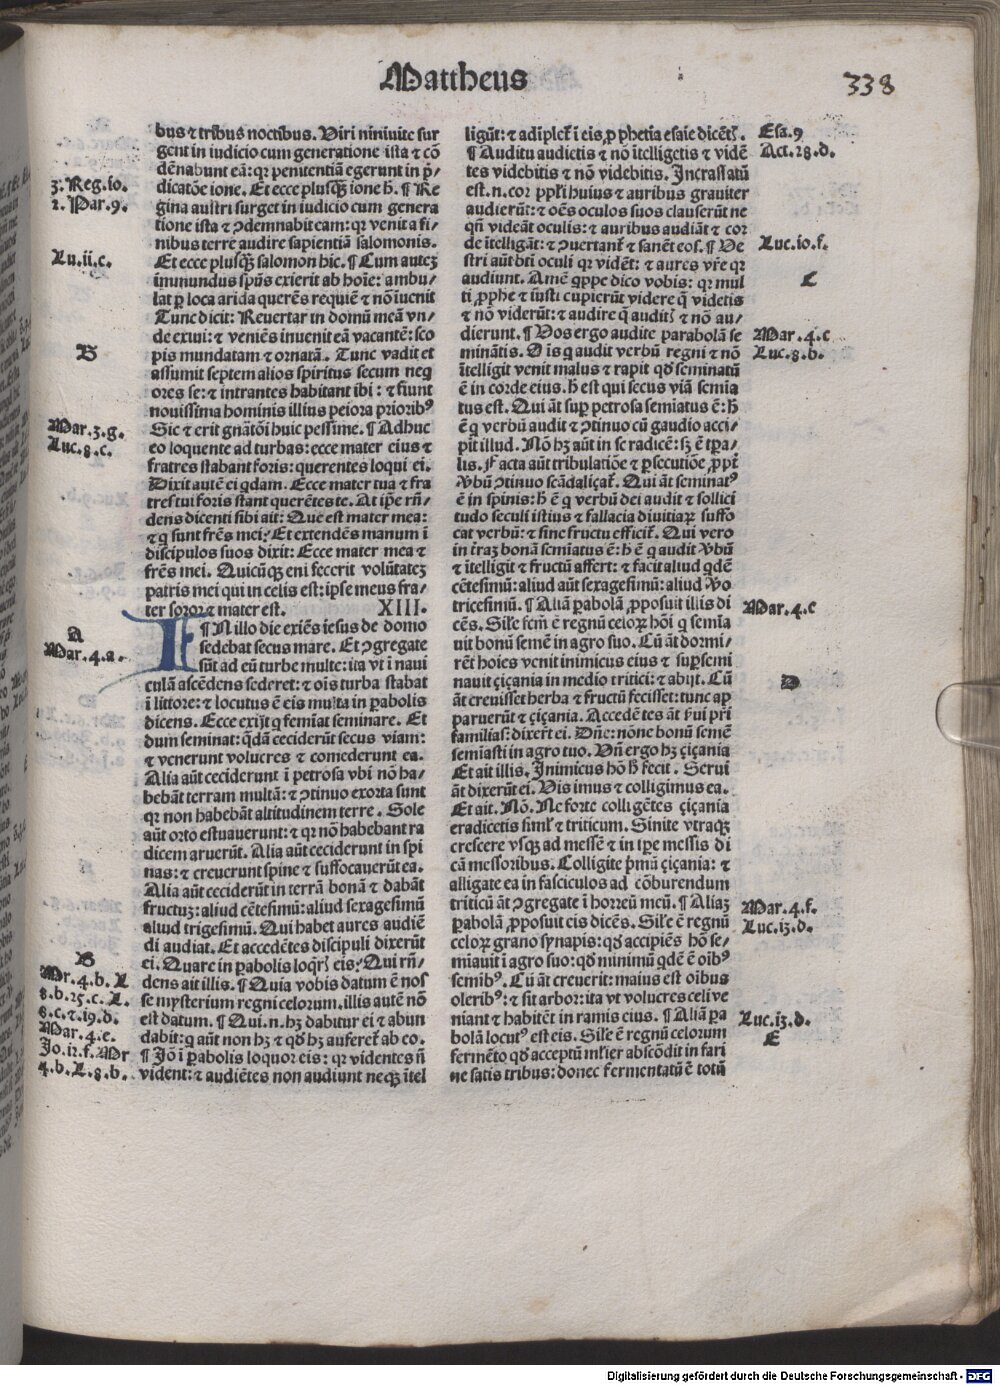 Mattheus
338
bus ⁊ tribus noctibus. Viri niniuite sur
gent in iudicio cum generatione ista ⁊ cō
dēnabunt eā: qꝛ penitentiā egerunt in p̄/
dicatōe ione. Et ecce plusqȝ ione h̄. ¶ Re
gina austri surget in iudicio cum genera
tione ista ⁊ ꝯdemnabit eam: qꝛ venit a fi/
nibus terre audire sapientiā salomonis.
Et ecce plusqȝ salomon hic. ¶ Cum auteȝ
immundus spūs exierit ab hoīe: ambu/
lat ꝑ loca arida querēs requiē ⁊ nō īuenit
Tunc dicit: Reuertar in domū meā vn/
de exiui: ⁊ veniēs inuenit eā vacantē: sco
pis mundatam ⁊ ornatā. Tunc vadit et
assumit septem alios spiritus secum neq
ores se: ⁊ intrantes habitant ibi: ⁊ fiunt
nouissima hominis illius peiora priorib⁹
Sic ⁊ erit gnātōi huic pessime. ¶ Adhuc
eo loquente ad turbas: ecce mater eius ⁊
fratres stabant foris: querentes loqui ei.
Dixit autē ei qdam. Ecce mater tua ⁊ fra
tres tui foris stant querētes te. At ip̄e rn̄/
dens dicenti sibi ait: Que est mater mea:
⁊ q sunt fr̄es mei? Et extendēs manum ī
discipulos suos dixit: Ecce mater mea ⁊
fr̄es mei. Quicūqȝ eni fecerit volūtateȝ
patris mei qui in celis est: ipse meus fra/
ter soror ⁊ mater est. XIII.
I ¶ N illo die exiēs iesus de domo
sedebat secus mare. Et ꝯgregate
sūt ad eū turbe multe: ita vt ī naui
culā ascēdens sederet: ⁊ oīs turba stabat
ī littore: ⁊ locutus ē eis multa in ꝑabolis
dicens. Ecce exijt q seminat seminare. Et
dum seminat: qdā ceciderūt secus viam:
⁊ venerunt volucres ⁊ comederunt ea.
Alia aūt ceciderunt ī petrosa vbi nō ha/
bebāt terram multā: ⁊ ꝯtinuo exorta sunt
qꝛ non habebāt altitudinem terre. Sole
aūt orto estuauerunt: ⁊ qꝛ nō habebant ra
dicem aruerūt. Alia aūt ceciderunt in spi
nas: ⁊ creuerunt spine ⁊ suffocauerūt ea.
Alia aūt ceciderūt in terrā bonā ⁊ dabāt
fructuȝ: aliud cētesimū: aliud sexagesimū
aliud trigesimū. Qui habet aures audiē
di audiat. Et accedētes discipuli dixerūt
ei. Quare in ꝑabolis loqr̄ eis? Qui rn̄/
dens ait illis. ¶ Quia vobis datum ē nos
se mysterium regni celorum. illis autē nō
est datum. ¶ Qui.n.hȝ dabitur ei ⁊ abun
dabit: q aūt non hȝ ⁊ qd hȝ auferet᷑ ab eo.
¶ Iō ī ꝑabolis loquor eis: qꝛ videntes n̄
vident: ⁊ audiētes non audiunt neqȝ ītel
3. Reg. io.
2. Par. 9.
Lu. ii. c.
B
Mar. 3. g.
Luc. 8. c.
A
Mar. 4. a.
B
Mr. 4. b. L
8. b. 25. c. L.
8. c. ⁊ i9. d.
Mar. 4. e.
Jo. i2. f. Mr
4. b. L. 8. b.
ligūt: ⁊ adīplet᷑ ī eis, ꝓphetia esaie dicēt᷑.
¶ Auditu audietis ⁊ nō ītelligetis ⁊ vidē
tes videbitis ⁊ nō videbitis. Incrassatū
est.n.cor ppl̄i huius ⁊ auribus grauiter
audierūt: ⁊ oēs oculos suos clauserūt ne
qn̄ videāt oculis: ⁊ auribus audiāt ⁊ cor
de ītelligāt: ⁊ ꝯuertant᷑ ⁊ sanē eos. ¶ Ve
stri aūt bt̄i oculi qꝛ vidēt: ⁊ aures vr̄e qꝛ
audiunt. Amē qppe dico vobis: qꝛ mul
ti ꝓphe ⁊ iusti cupierūt videre q videtis
⁊ nō viderūt: ⁊ audire q audit᷑ ⁊ nō au/
dierunt. ¶ Vos ergo audite parabolā se
minātis. Oīs q audit verbū regni ⁊ nō
ītelligit venit malus ⁊ rapit qd seminatū
ē in corde eius. h̄ est qui secus viā semia
tus est. Qui āt suꝑ petrosa semiatus ē: h̄
ē q verbū audit ⁊ ꝯtinuo cū gaudio acci/
pit illud. Nō hȝ aūt in se radicē: sȝ ē tꝑa/
lis. Facta aūt tribulatiōe ⁊ ꝑsecutiōe, ꝓpt̄
v̄bū ꝯtinuo scādaliçat᷑. Qui āt seminat⁹
ē in spinis: h̄ ē q verbū dei audit ⁊ sollici
tudo seculi istius ⁊ fallacia diuitiaꝝ suffo
cat verbū: ⁊ sine fructu efficit᷑. Qui vero
in t̄raȝ bonā semiatus ē: h̄ ē q audit v̄bū
⁊ ītelligit ⁊ fructū affert: ⁊ facit aliud qdē
cētesimū: aliud aūt sexagesimū: aliud v̄o
tricesimū. ¶ Aliā ꝑabolā ꝓposuit illis di
cēs. Sil̄e fcm̄ ē regnū celoꝝ hōi q semia
uit bonū semē in agro suo. Cū āt dormi/
rēt hoies venit inimicus eius ⁊ suꝑsemi
nauit çiçania in medio tritici: ⁊ abijt. Cū
āt creuisset herba ⁊ fructū fecisset: tunc ap
paruerūt ⁊ çiçania. Accedētes āt s̄ui pr̄i
familias: dixer̄t ei. Dn̄e: nōne bonū semē
semiasti in agro tuo. Vn̄ ergo hȝ çiçania
Et ait illis. Inimicus hō h̄ fecit. Serui
āt dixerūt ei. Vis imus ⁊ colligimus ea.
Et ait. Nō. Ne forte colligētes çiçania
eradicetis siml̄ ⁊ triticum. Sinite vtraqȝ
crescere vsqȝ ad messē ⁊ in tp̄e messis di
cā messoribus. Colligite p̄mā çiçania: ⁊
alligate ea in fasciculos ad cōburendum
triticū āt ꝯgregate ī horreū meū. ¶ Aliaȝ
ꝑabolā ꝓposuit eis dicēs. Sil̄e ē regnū
celoꝝ grano synapis: qd accipiēs hō se/
miauit ī agro suo: qd minimū qdē ē oīb⁹
semib⁹. Cū āt creuerit: maius est oībus
olerib⁹: ⁊ fit arbor: ita vt volucres celi ve
niant ⁊ habitēt in ramis eius. ¶ Aliā ꝑa
bolā locut⁹ est eis. Sil̄e ē regnū celorum
fermēto qd acceptū ml̄ier abscōdit in fari
ne satis tribus: donec fermentatū ē totū
Esa. 9
Act. 28. d.
Luc. io. f.
C
Mar. 4. c
Luc. 8. b.
Mar. 4. c
D
Mar. 4. f.
Luc. i3. d.
Luc. i3. d.
E
Digitalisierung gefördert durch die Deutsche Forschungsgemeinschaft - DFG